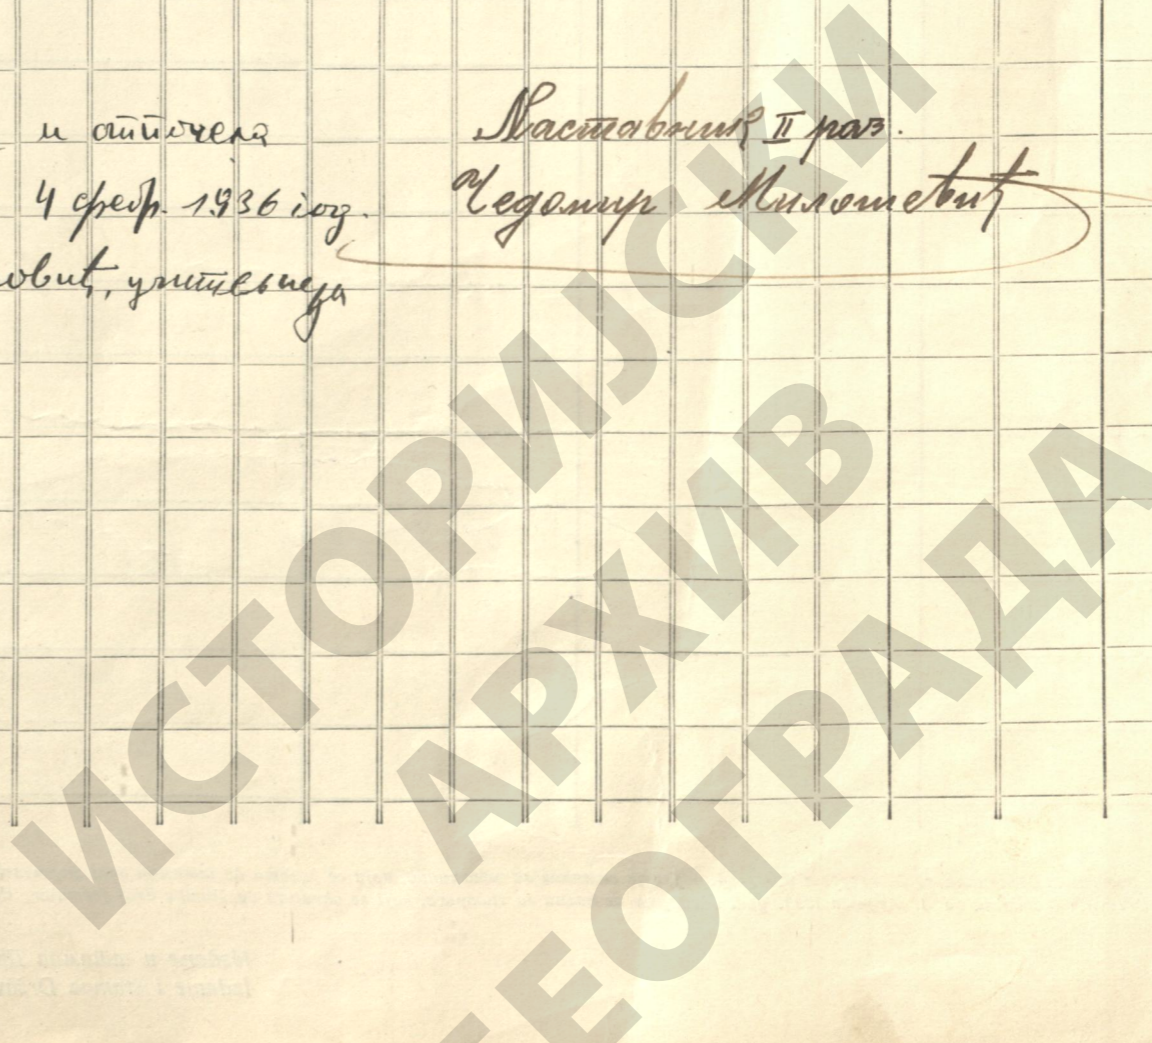 и отпочела
4 фебр. 1936 год.
овић, учитељица
Наставник II раз.
Чедомир Милошевић
ИСТОРИЈСКИ
АРХИВ
БЕОГРАДА